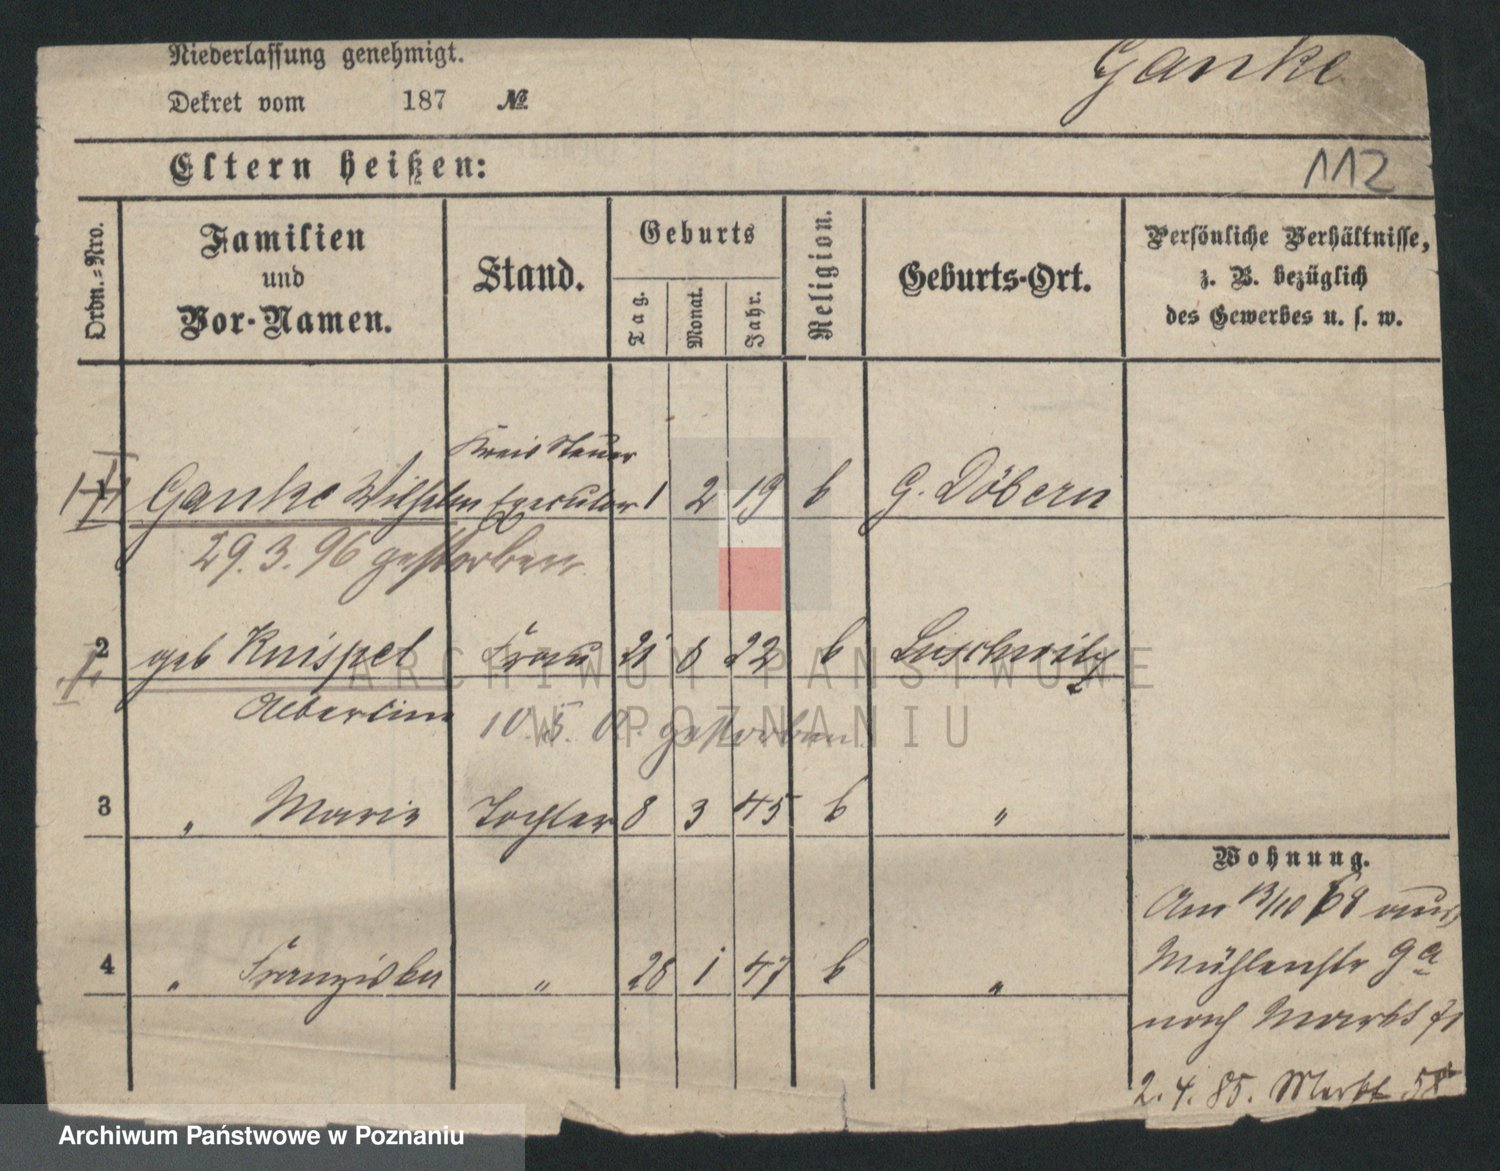 Niederlassung genehmigt.
Ganke
Dekret vom 187 №
Eltern heißen:
112
Ordn.=Nro.
Familien
und
Vor-Namen.
Stand.
Geburts
Tag.
Monat.
Jahr.
Religion.
Geburts-Ort.
Persönliche Verhältnisse,
z. B. bezüglich
des Gewerbes u. s. w.
Kreis Steuer
1 Ganke Wilhelm Executor 1 2 19 G. Döbern
29.3.96 gestorben
2 geb Knispel Frau 21 22 Luschwitz
Albertine 10.5. gestorben
3 " Marie Tochter 8 3 45 "
Wohnung.
Am 13/10 68 aus
4 " Franziska " 28 1 47 "
Mühlenstr 9a
nach Markt 71
2.4.85. Markt 58
ARCHIWUM PAŃSTWOWE
W POZNANIU
Archiwum Państwowe w Poznaniu